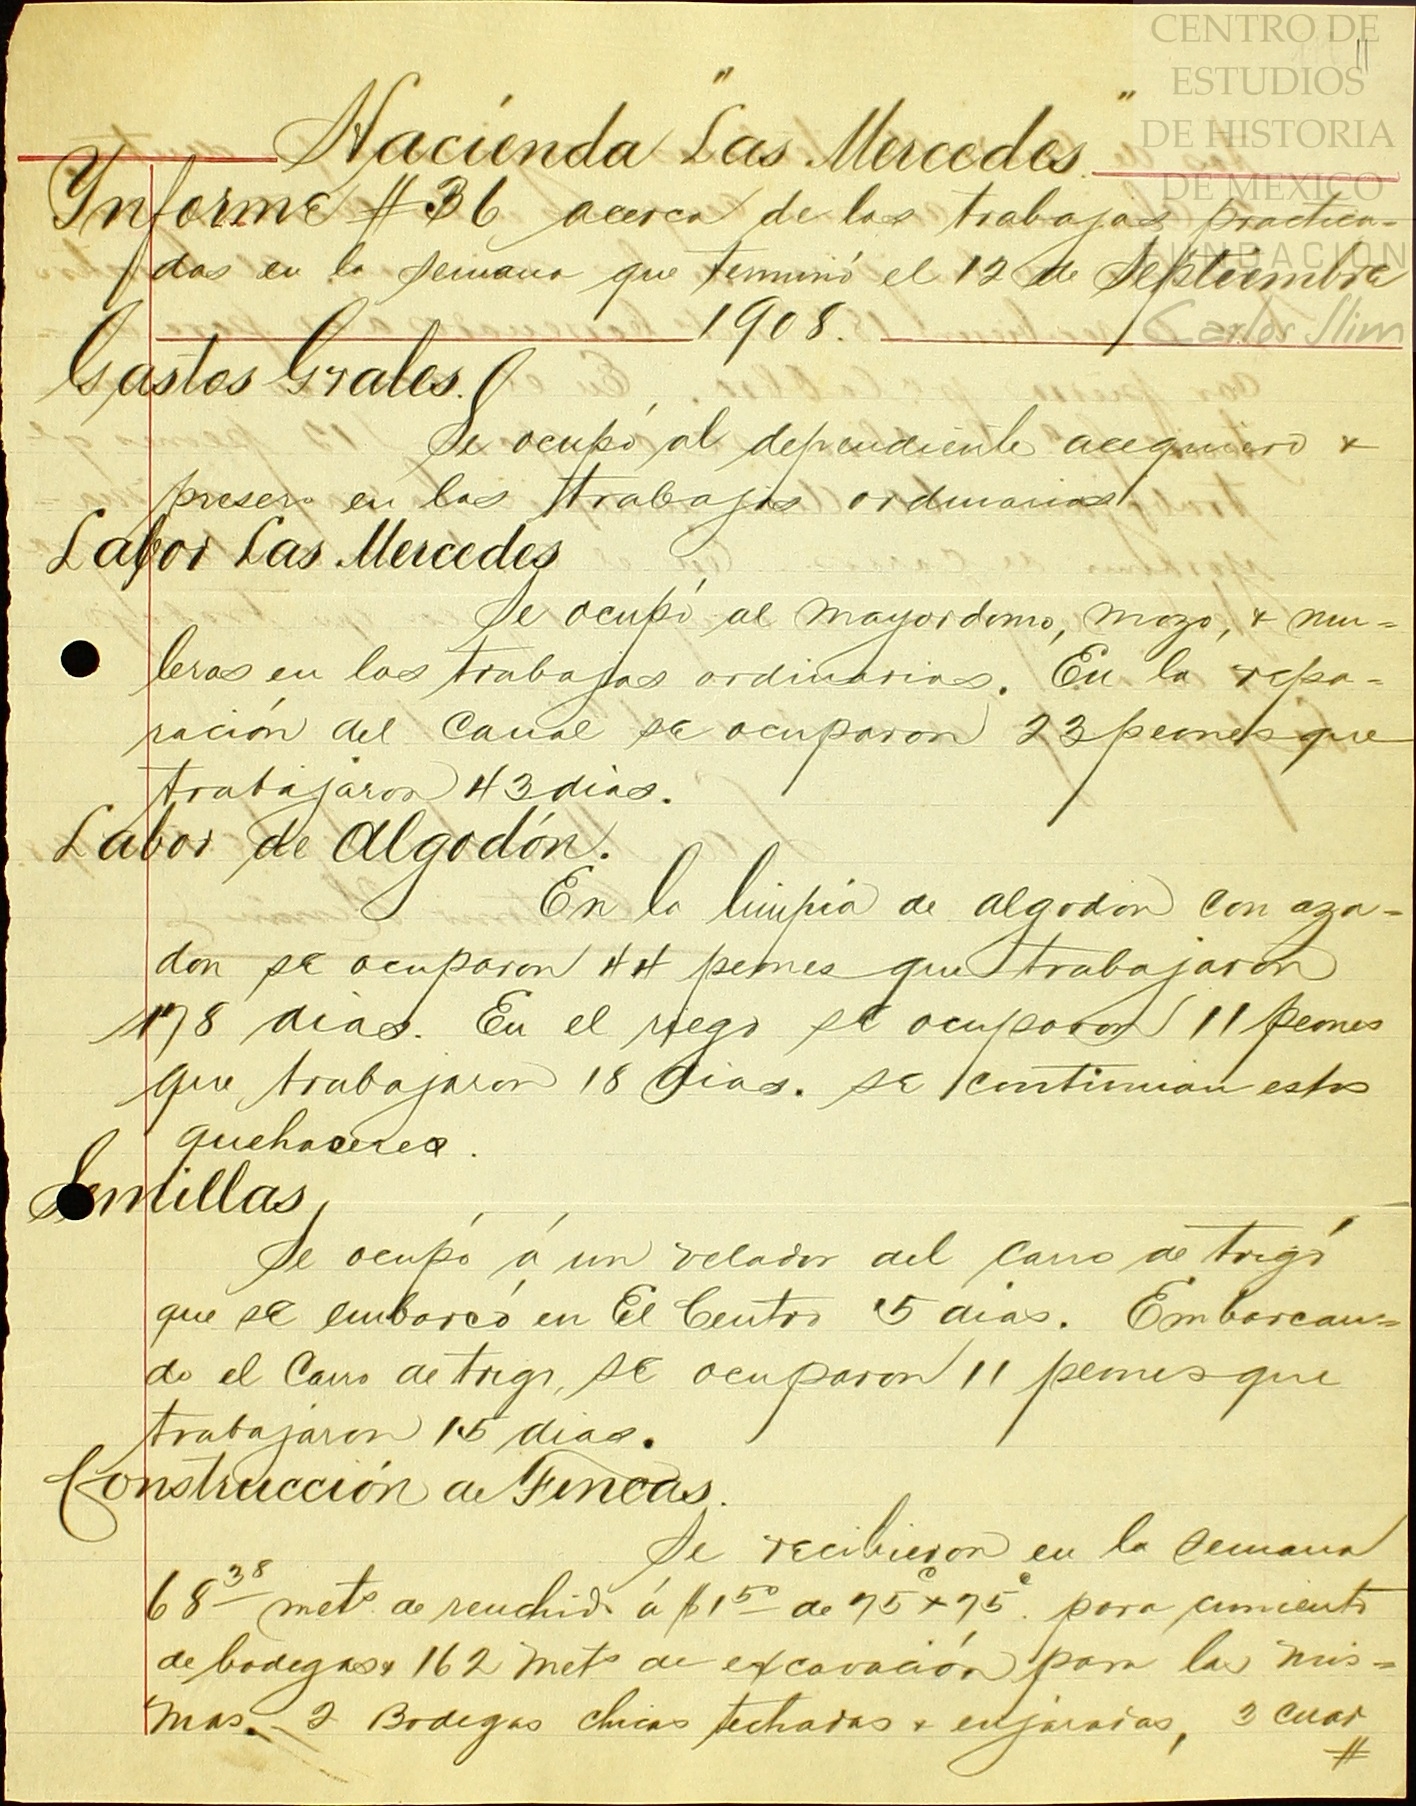 CENTRO DE
ESTUDIOS
DE HISTORIA
DE MEXICO
FUNDACION
Carlos Slim
11
Hacienda "Las Mercedes"
Ynforme # 36 acerca de los trabajos practica-
dos en la semana que terminó el 12 de Septiembre
1908.
Gastos Grales.
Se ocupó al dependiente acequiero &
presero en los trabajos ordinarios
Labor Las Mercedes
Se ocupó al mayordomo, mozo, & mu-
leros en los trabajos ordinarios. En la repa-
ración del Canal se ocuparon 23 peones que
trabajaron 43 dias.
Labor de Algodón.
En la limpia de algodon con aza-
don se ocuparon 44 peones que trabajaron
178 dias. En el riego se ocuparon 11 peones
que trabajaron 18 dias. se continuan estos
quehaceres.
Semillas
Se ocupó á un velador del carro de trigo
que se embarcó en El Centro 5 dias. Embarcan=
do el Carro de trigo, se ocuparon 11 peones que
trabajaron 15 dias.
Construcción de Fincas.
Se recibieron en la semana
68 38 mets. de renchido á $1 50 de 75c x 75c. para cimiento
de bodegas & 162 mets de excavación para las mis=
mas. 2 Bodegas chicas techadas & enjaradas, 3 cuar
#